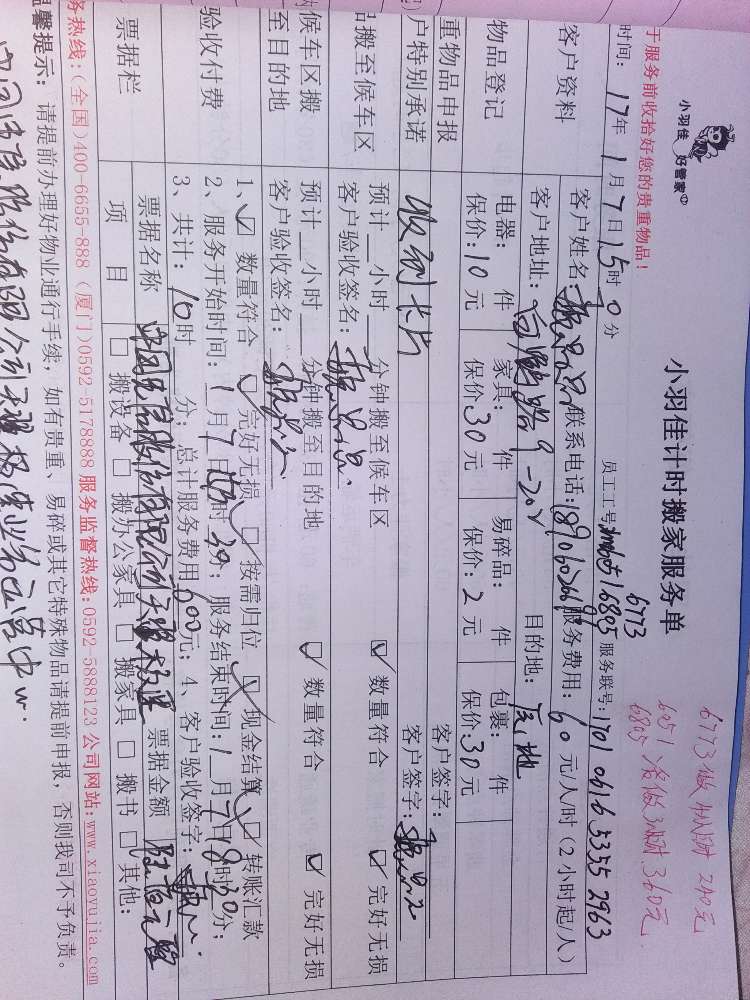 小羽佳 好管家
小羽佳计时搬家服务单
于服务前收拾好您的贵重物品！
6773做4小时 240元
6051
6805 各做3小时 360元
6773
时间：17年1月7日15时0分 员工工号 6051 6805 服务联号：1701061653552963
客户资料
客户姓名： 联系电话： 服务费用：60元/人/时（2小时起/人）
客户地址： 9-202 目的地：
物品登记
电器： 件 家具： 件 易碎品： 件 包裹： 件
保价：10元 保价：30元 保价：2元 保价：30元
重物品申报 客户签字：
户特别承诺 收到卡片 客户签字：
品搬至候车区
预计 小时 分钟搬至候车区
客户验收签名： 数量符合 完好无损
候车区搬
至目的地
预计 小时 分钟搬至目的地
客户验收签名： 数量符合 完好无损
验收付费
1、数量符合 完好无损 按需归位 现金结算 转账汇款
2、服务开始时间：1月7日 时30分；服务结束时间：1月7日18时30分；
3、共计：10时 分；总计服务费用600元；4、客户验收签字：
票据栏
票据名称 票据金额 陆佰元整
项 目 搬设备 搬办公家具 搬家具 搬书 其他：
务热线：(全国)400-6655-888（厦门)0592-5178888 服务监督热线：0592-5888123 公司网站：www.xiaoyujia.com
温馨提示：请提前办理好物业通行手续，如有贵重、易碎或其它特殊物品请提前申报，否则我司不予负责。
中国信息股份有限公司